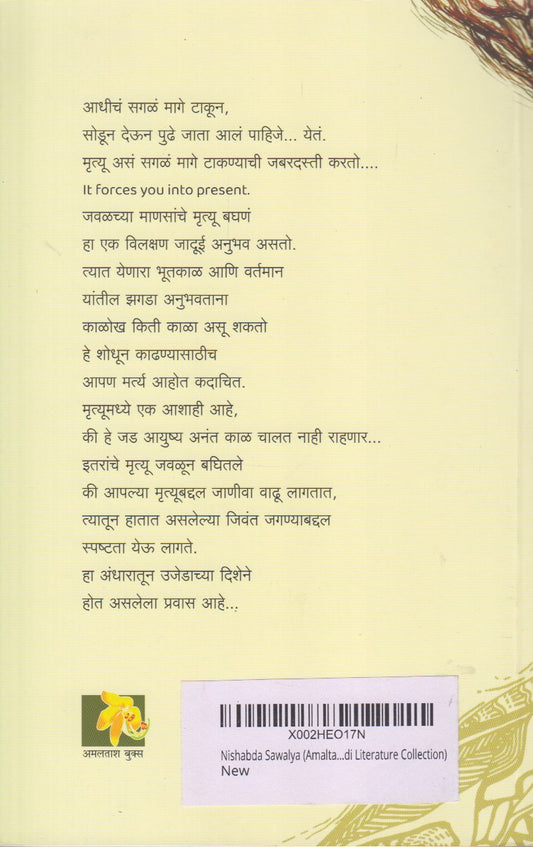 आधीचं सगळं मागे टाकून,
सोडून देऊन पुढे जाता आलं पाहिजे... येतं.
मृत्यू असं सगळं मागे टाकण्याची जबरदस्ती करतो....
It forces you into present.
जवळच्या माणसांचे मृत्यू बघणं
हा एक विलक्षण जादूई अनुभव असतो.
त्यात येणारा भूतकाळ आणि वर्तमान
यांतील झगडा अनुभवताना
काळोख किती काळा असू शकतो
हे शोधून काढण्यासाठीच
आपण मर्त्य आहोत कदाचित.
मृत्यूमध्ये एक आशाही आहे,
की हे जड आयुष्य अनंत काळ चालत नाही राहणार...
इतरांचे मृत्यू जवळून बघितले
की आपल्या मृत्यूबद्दल जाणीवा वाढू लागतात,
त्यातून हातात असलेल्या जिवंत जगण्याबद्दल
स्पष्टता येऊ लागते.
हा अंधारातून उजेडाच्या दिशेने
होत असलेला प्रवास आहे...
अमलताश बुक्स
X002HEO17N
Nishabda Sawalya (Amalta...di Literature Collection)
New